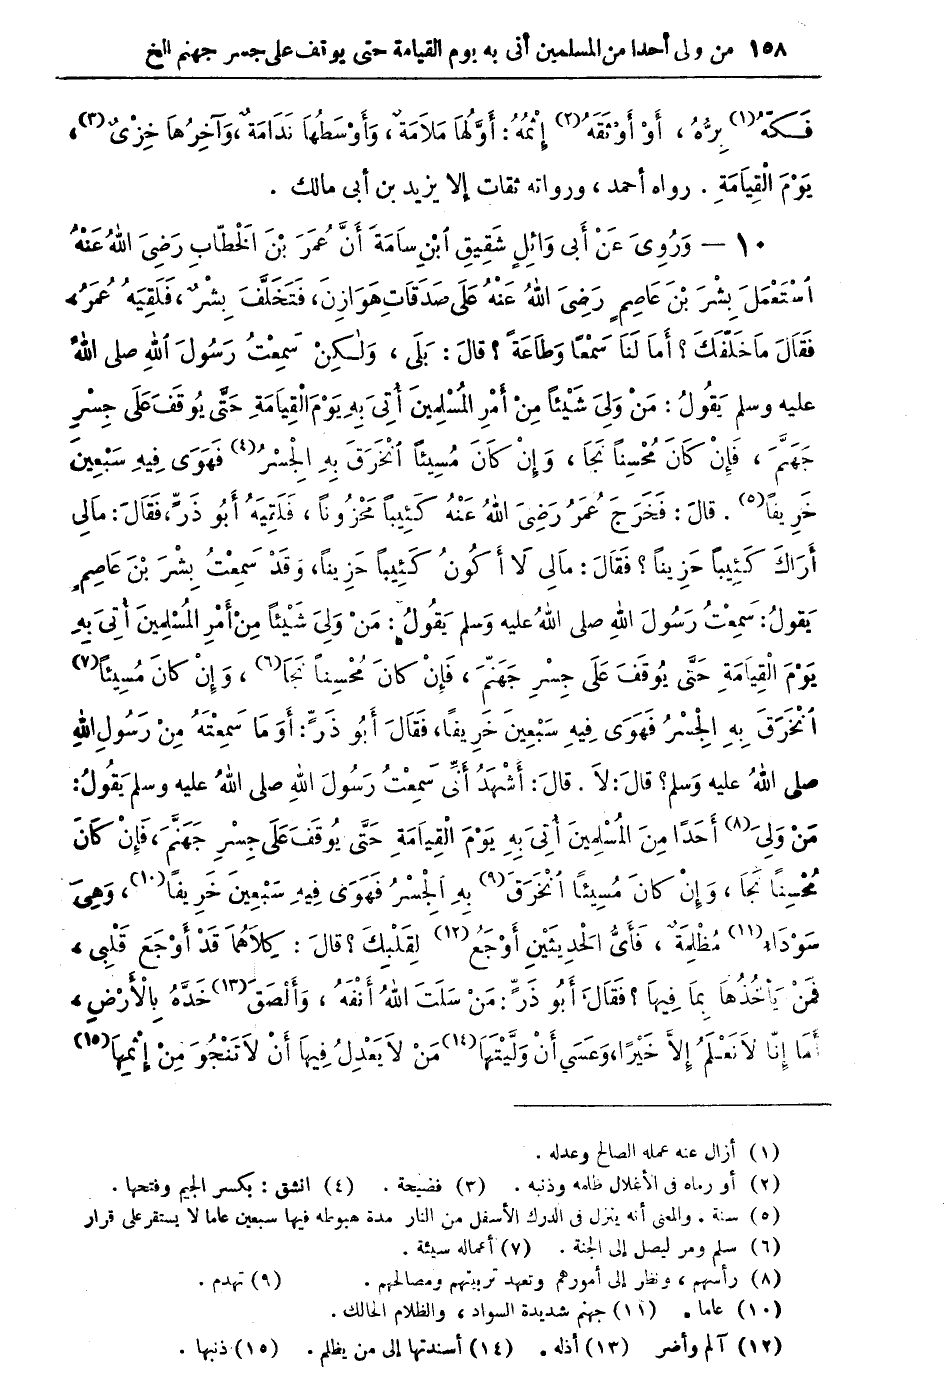 ١٥٨ من ولى أحدا من المسلمين أتى به يوم القيامة حتى يوقف على جسر جهنم الخ
فَكَّهُ(١) بِرُّهُ ، أَوْ أَوْثَقَهُ(٢) إِثْمُهُ : أَوَّلُهَا مَلَامَةٌ ، وَأَوْسَطُهَا نَدَامَةٌ ، وَآخِرُهَا خِزْىٌ(٣) ،
يَوْمَ الْقِيَامَةِ . رواه أحمد ، ورواته ثقات إلا يزيد بن أبى مالك .
١٠ — وَرُوِىَ عَنْ أَبِى وَائِلٍ شَقِيقِ ابْنِ سَامَةَ أَنَّ عُمَرَ بْنَ الْخَطَّابِ رَضِىَ اللهُ عَنْهُ
اسْتَعْمَلَ بِشْرَ بْنَ عَاصِمٍ رَضِىَ اللهُ عَنْهُ عَلَى صَدَقَاتِ هَوَازِنَ ، فَتَخَلَّفَ بِشْرٌ ، فَلَقِيَهُ عُمَرُ ،
فَقَالَ مَا خَلَّفَكَ ؟ أَمَا لَنَا سَمْعًا وَطَاعَةً ؟ قَالَ : بَلَى ، وَلَكِنْ سَمِعْتُ رَسُولَ اللهِ صلى اللهُ
عليه وسلم يَقُولُ : مَنْ وَلِىَ شَيْئًا مِنْ أَمْرِ الْمُسْلِمِينَ أُتِىَ بِهِ يَوْمَ الْقِيَامَةِ حَتَّى يُوقَفَ عَلَى جِسْرِ
جَهَنَّمَ ، فَإِنْ كَانَ مُحْسِنًا نَجَا ، وَإِنْ كَانَ مُسِيئًا انْخَرَقَ بِهِ الْجِسْرُ(٤) فَهَوَى فِيهِ سَبْعِينَ
خَرِيفًا(٥) . قَالَ : فَخَرَجَ عُمَرُ رَضِىَ اللهُ عَنْهُ كَئِيبًا مَحْزُونًا ، فَلَقِيَهُ أَبُو ذَرٍّ ، فَقَالَ : مَالِى
أَرَاكَ كَئِيبًا حَزِينًا ؟ فَقَالَ : مَالِى لَا أَكُونُ كَئِيبًا حَزِينًا ، وَقَدْ سَمِعْتُ بِشْرَ بْنَ عَاصِمٍ
يَقُولُ : سَمِعْتُ رَسُولَ اللهِ صلى اللهُ عليه وَسلم يَقُولُ : مَنْ وَلِىَ شَيْئًا مِنْ أَمْرِ الْمُسْلِمِينَ أُتِىَ بِهِ
يَوْمَ الْقِيَامَةِ حَتَّى يُوقَفَ عَلَى جِسْرِ جَهَنَّمَ ، فَإِنْ كَانَ مُحْسِنًا نَجَا(٦) ، وَإِنْ كَانَ مُسِيئًا(٧)
انْخَرَقَ بِهِ الْجِسْرُ فَهَوَى فِيهِ سَبْعِينَ خَرِيفًا ، فَقَالَ أَبُو ذَرٍّ : أَوَ مَا سَمِعْتَهُ مِنْ رَسُولِ اللهِ
صلى اللهُ عليه وَسلم ؟ قَالَ : لَا . قَالَ : أَشْهَدُ أَنِّى سَمِعْتُ رَسُولَ اللهِ صلى اللهُ عليه وسلم يَقُولُ :
مَنْ وَلِىَ(٨) أَحَدًا مِنَ الْمُسْلِمِينَ أُتِىَ بِهِ يَوْمَ الْقِيَامَةِ حَتَّى يُوقَفَ عَلَى جِسْرِ جَهَنَّمَ ، فَإِنْ كَانَ
مُحْسِنًا نَجَا ، وَإِنْ كَانَ مُسِيئًا انْخَرَقَ(٩) بِهِ الْجِسْرُ فَهَوَى فِيهِ سَبْعِينَ خَرِيفًا(١٠) ، وَهِىَ
سَوْدَاءُ(١١) مُظْلِمَةٌ ، فَأَىُّ الْحَدِيثَيْنِ أَوْجَعُ(١٢) لِقَلْبِكَ ؟ قَالَ : كِلَاهُمَا قَدْ أَوْجَعَ قَلْبِى ،
فَمَنْ يَأْخُذُهَا بِمَا فِيهَا ؟ فَقَالَ أَبُو ذَرٍّ : مَنْ سَلَتَ اللهُ أَنْفَهُ ، وَأَلْصَقَ(١٣) خَدَّهُ بِالْأَرْضِ ،
أَمَا إِنَّا لَا نَعْلَمُ إِلَّا خَيْرًا ، وَعَسَى أَنْ وَلَّيْتَهَا(١٤) مَنْ لَا يَعْدِلُ فِيهَا أَنْ لَا تَنْجُوَ مِنْ إِثْمِهَا(١٥)
(١) أزال عنه عمله الصالح وعدله .
(٢) أو رماه فى الأغلال ظلمه وذنبه . (٣) فضيحة . (٤) انشق : بكسر الجيم وفتحها .
(٥) سنة . والمعنى أنه ينزل فى الدرك الأسفل من النار مدة هبوطه فيها سبعين عاما لا يستقر على قرار
(٦) سلم ومر ليصل إلى الجنة . (٧) أعماله سيئة .
(٨) رأسهم ، ونظر إلى أمورهم وتعهد تربيتهم ومصالحهم . (٩) تهدم .
(١٠) عاما . (١١) جهنم شديدة السواد ، والظلام الحالك .
(١٢) آلم وأضر (١٣) أذله . (١٤) أسندتها إلى من يظلم . (١٥) ذنبها .